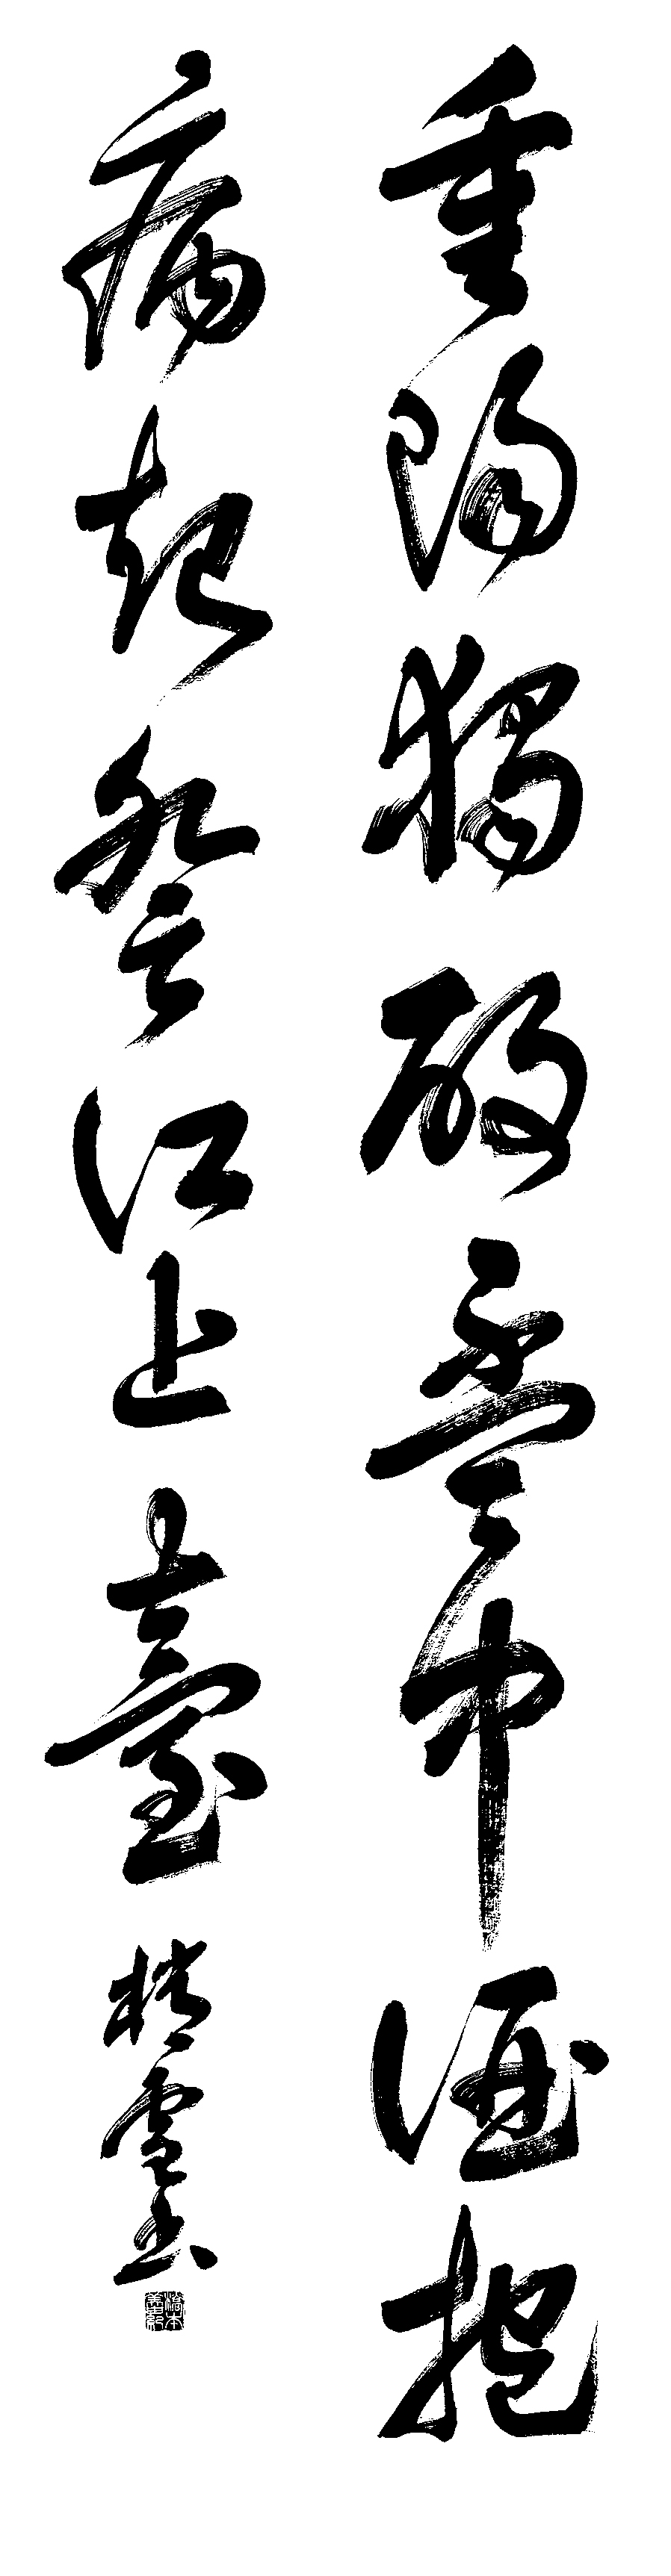 重陽獨酌盃中酒抱
病起登江上臺 雲書